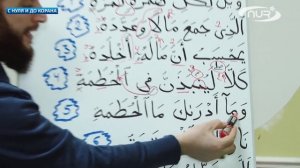 С НУЛЯ И ДО КОРАНА
NUR
وَيْلٌ لِكُلِّ هُمَزَةٍ لُمَزَةٍ
الَّذِي جَمَعَ مَالًا وَعَدَّدَهُ
3 يَحْسَبُ أَنَّ مَالَهُ أَخْلَدَهُ
4 كَلَّا لَيُنْبَذَنَّ فِي الْحُطَمَةِ
5 وَمَا أَدْرَىٰكَ مَا الْحُطَمَةُ
6